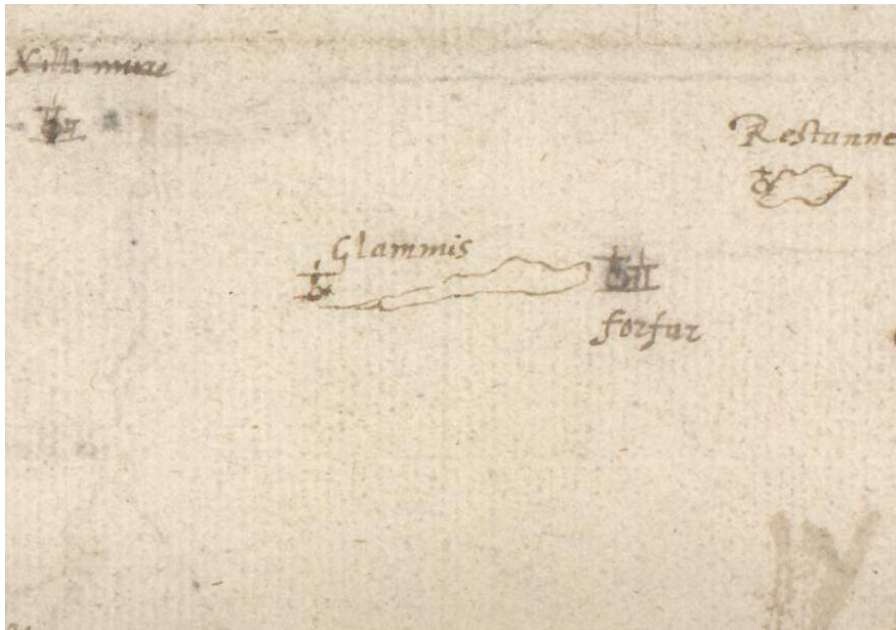 Killimure
Restanne
Glammis
forfar